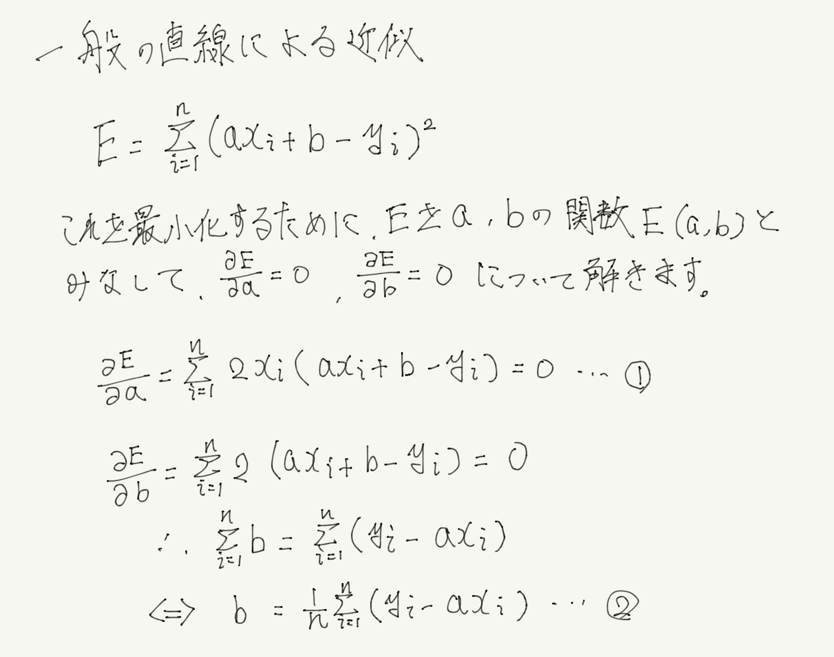 一般の直線による近似
E = Σ_{i=1}^{n} (ax_i + b - y_i)^2
これを最小化するために、Eをa, bの関数E(a,b)と
みなして、∂E/∂a = 0 , ∂E/∂b = 0 について解きます。
∂E/∂a = Σ_{i=1}^{n} 2x_i (ax_i + b - y_i) = 0 … ①
∂E/∂b = Σ_{i=1}^{n} 2 (ax_i + b - y_i) = 0
∴ Σ_{i=1}^{n} b = Σ_{i=1}^{n} (y_i - ax_i)
⇔ b = 1/n Σ_{i=1}^{n} (y_i - ax_i) … ②